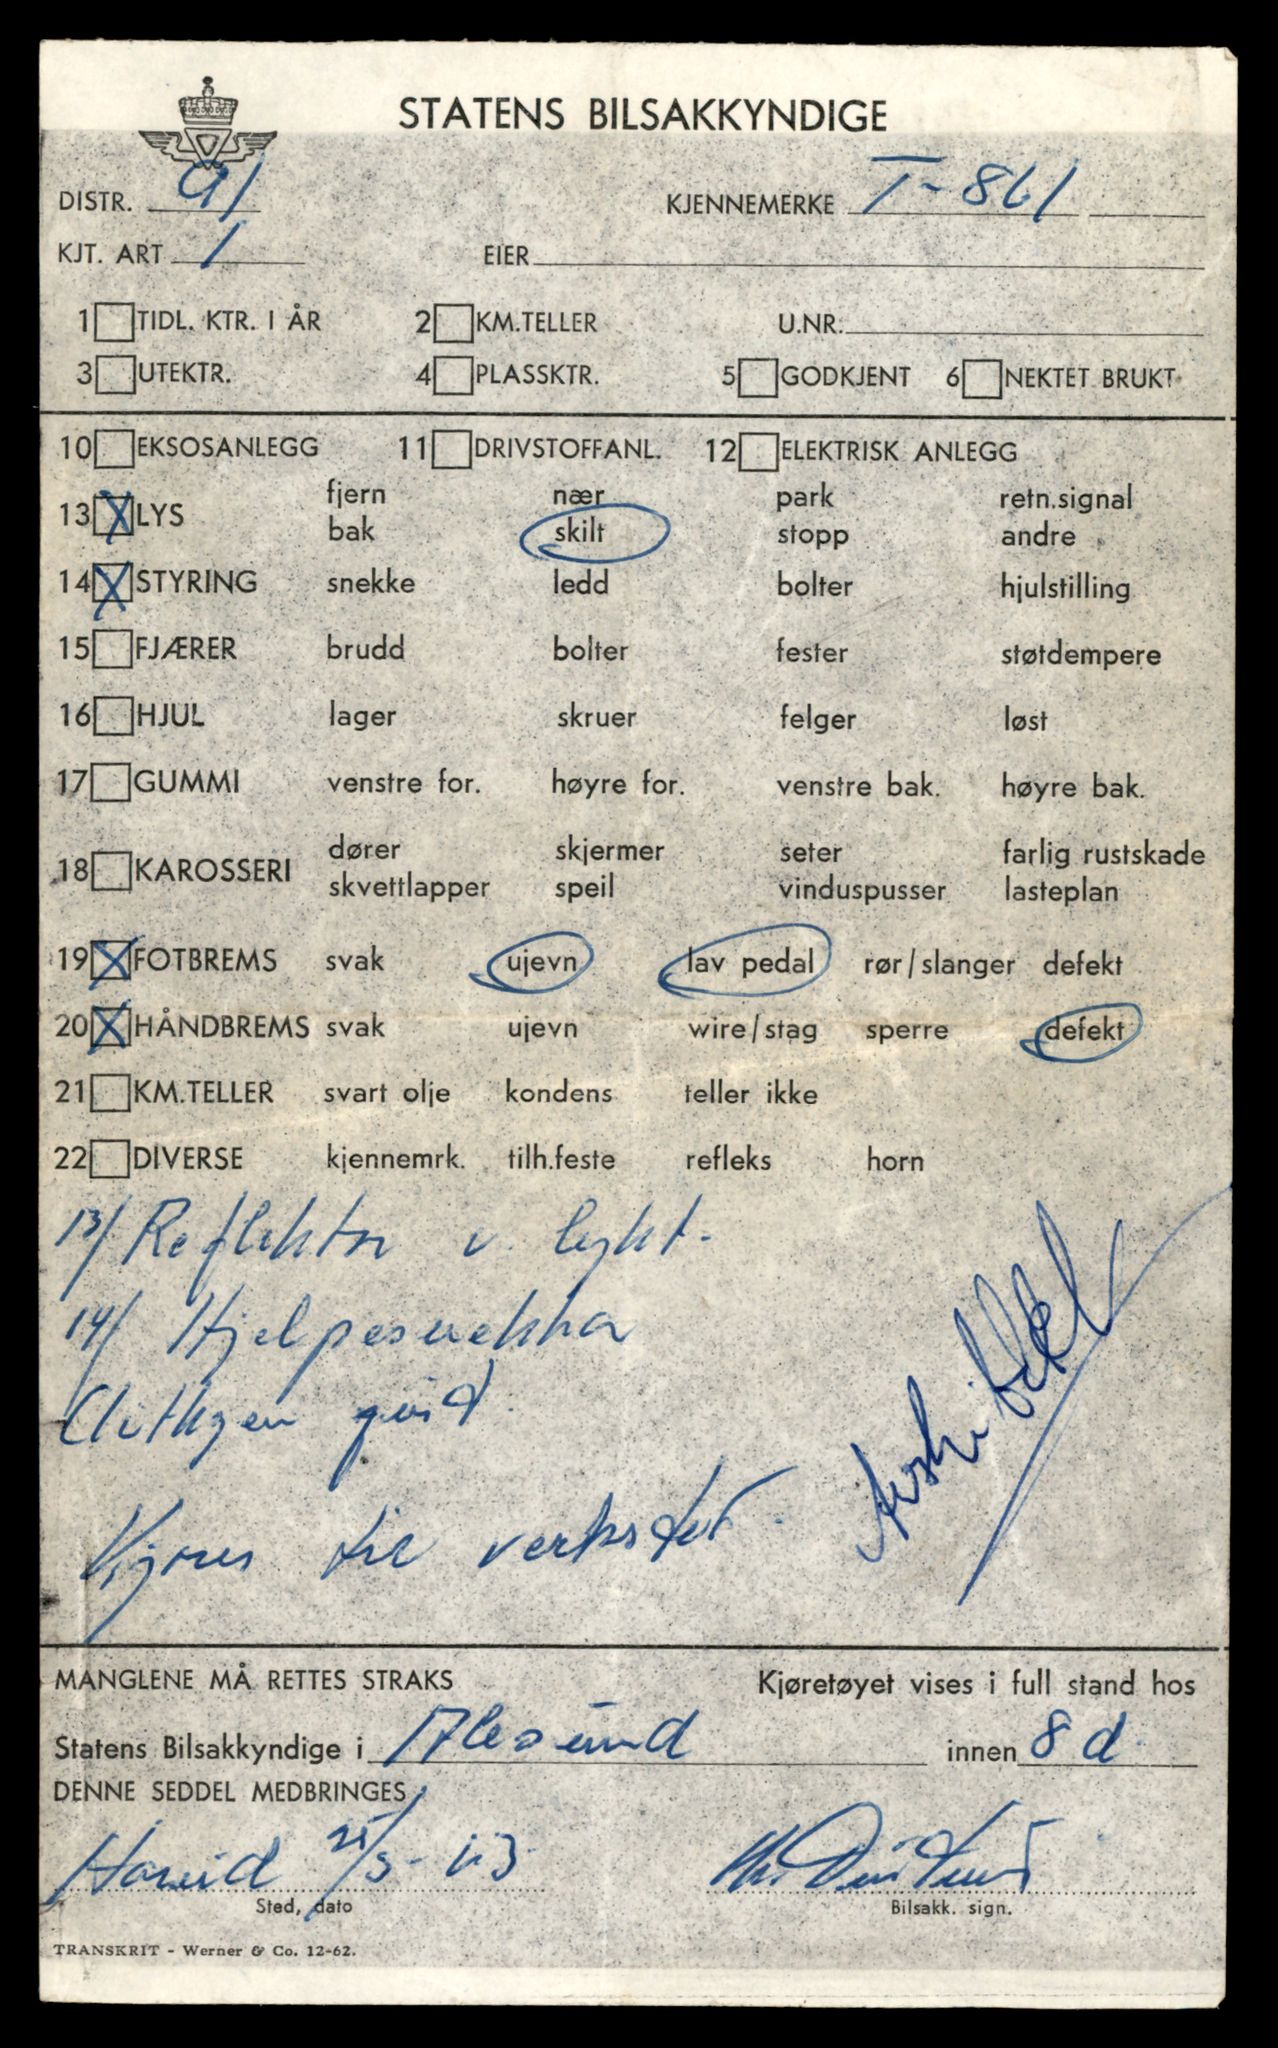 STATENS BILSAKKYNDIGE
DISTR. 91 KJENNEMERKE T-861
KJT. ART 1 EIER
1 TIDL. KTR. I ÅR 2 KM.TELLER U.NR:
3 UTEKTR. 4 PLASSKTR. 5 GODKJENT 6 NEKTET BRUKT
10 EKSOSANLEGG 11 DRIVSTOFFANL. 12 ELEKTRISK ANLEGG
fjern nær park retn.signal
13 X LYS
bak skilt stopp andre
14 X STYRING snekke ledd bolter hjulstilling
15 FJÆRER brudd bolter fester støtdempere
16 HJUL lager skruer felger løst
17 GUMMI venstre for. høyre for. venstre bak. høyre bak.
dører skjermer seter farlig rustskade
18 KAROSSERI
skvettlapper speil vinduspusser lasteplan
19 X FOTBREMS svak ujevn lav pedal rør/slanger defekt
20 X HÅNDBREMS svak ujevn wire/stag sperre defekt
21 KM.TELLER svart olje kondens teller ikke
22 DIVERSE kjennemrk. tilh.feste refleks horn
13/ Reflektor v. lykt.
14/ Hjelpesnekka
Kjøres til verksted.
MANGLENE MÅ RETTES STRAKS Kjøretøyet vises i full stand hos
Statens Bilsakkyndige i Ålesund innen 8 d.
DENNE SEDDEL MEDBRINGES
Hareid 25/3-63
Sted, dato Bilsakk. sign.
TRANSKRIT - Werner & Co. 12-62.